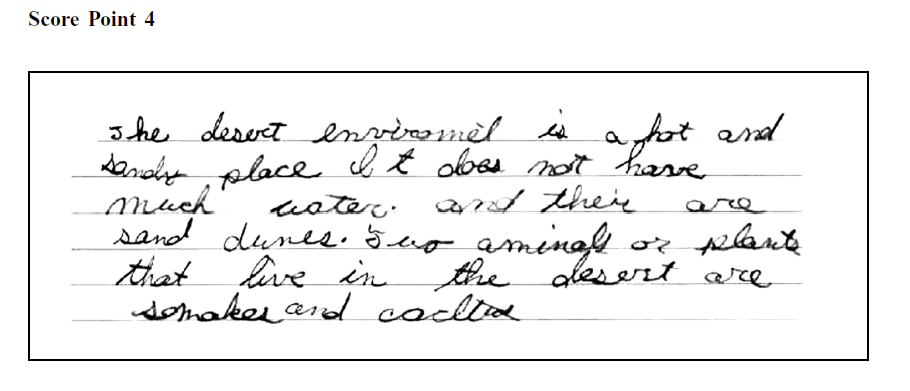 Score Point 4
The desert enviromel is a hot and
sandy place It does not have
much water. and their are
sand dunes. Two aminals or plants
that live in the desert are
somakes and cactus